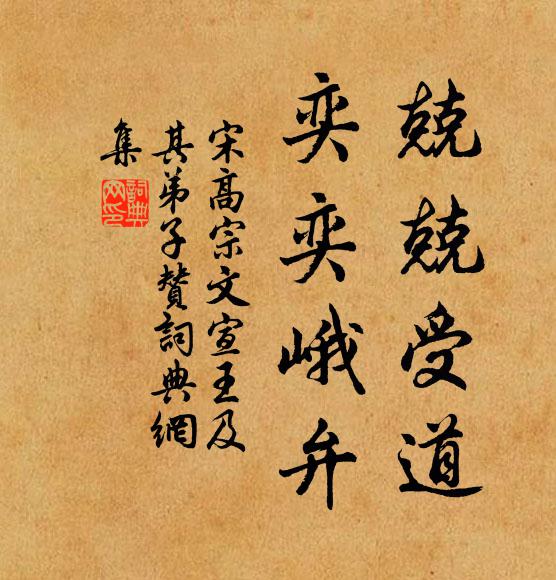 兢兢受道
奕奕峨弁
宋高宗文宣王及
其弟子赞詞典網
集
詞典
网印